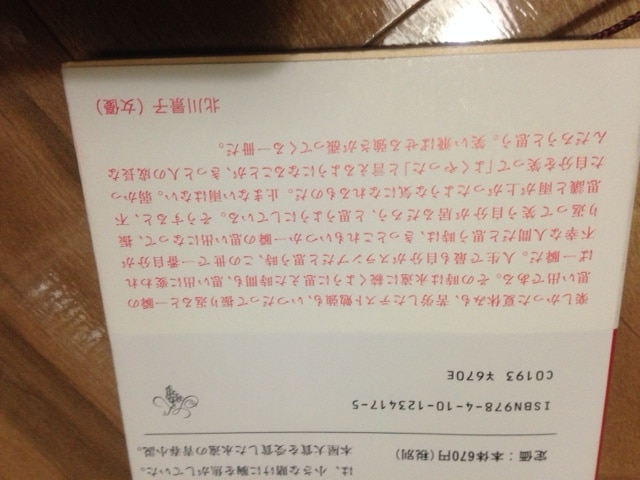 は、小さな賭けに胸を焦がしていた。
本屋大賞を受賞した永遠の青春小説。
定価：本体670円(税別)
ISBN978-4-10-123417-5
C0193 ¥670E
楽しかった夏休みも、苦労したテスト勉強も、いつだって振り返ると一瞬の
思い出である。その時は永遠に続くように思えた時間も、思い出に変われ
ば一瞬だ。人生で最も自分がスランプだと思う時、この世で一番自分が
不幸な人間だと思う時は、きっとこれもいつか一瞬の思い出になって、振
り返って笑う自分が居るだろう、と思うようにしている。そうすると、不
思議と雨が上がったような気になれるものだ。止まない雨はない。弱かっ
た自分を笑って「よくやった」と言えるようになることが、きっと人の成長な
んだろうと思う。笑い飛ばせる強さが漲ってくる一冊だ。
北川景子（女優）